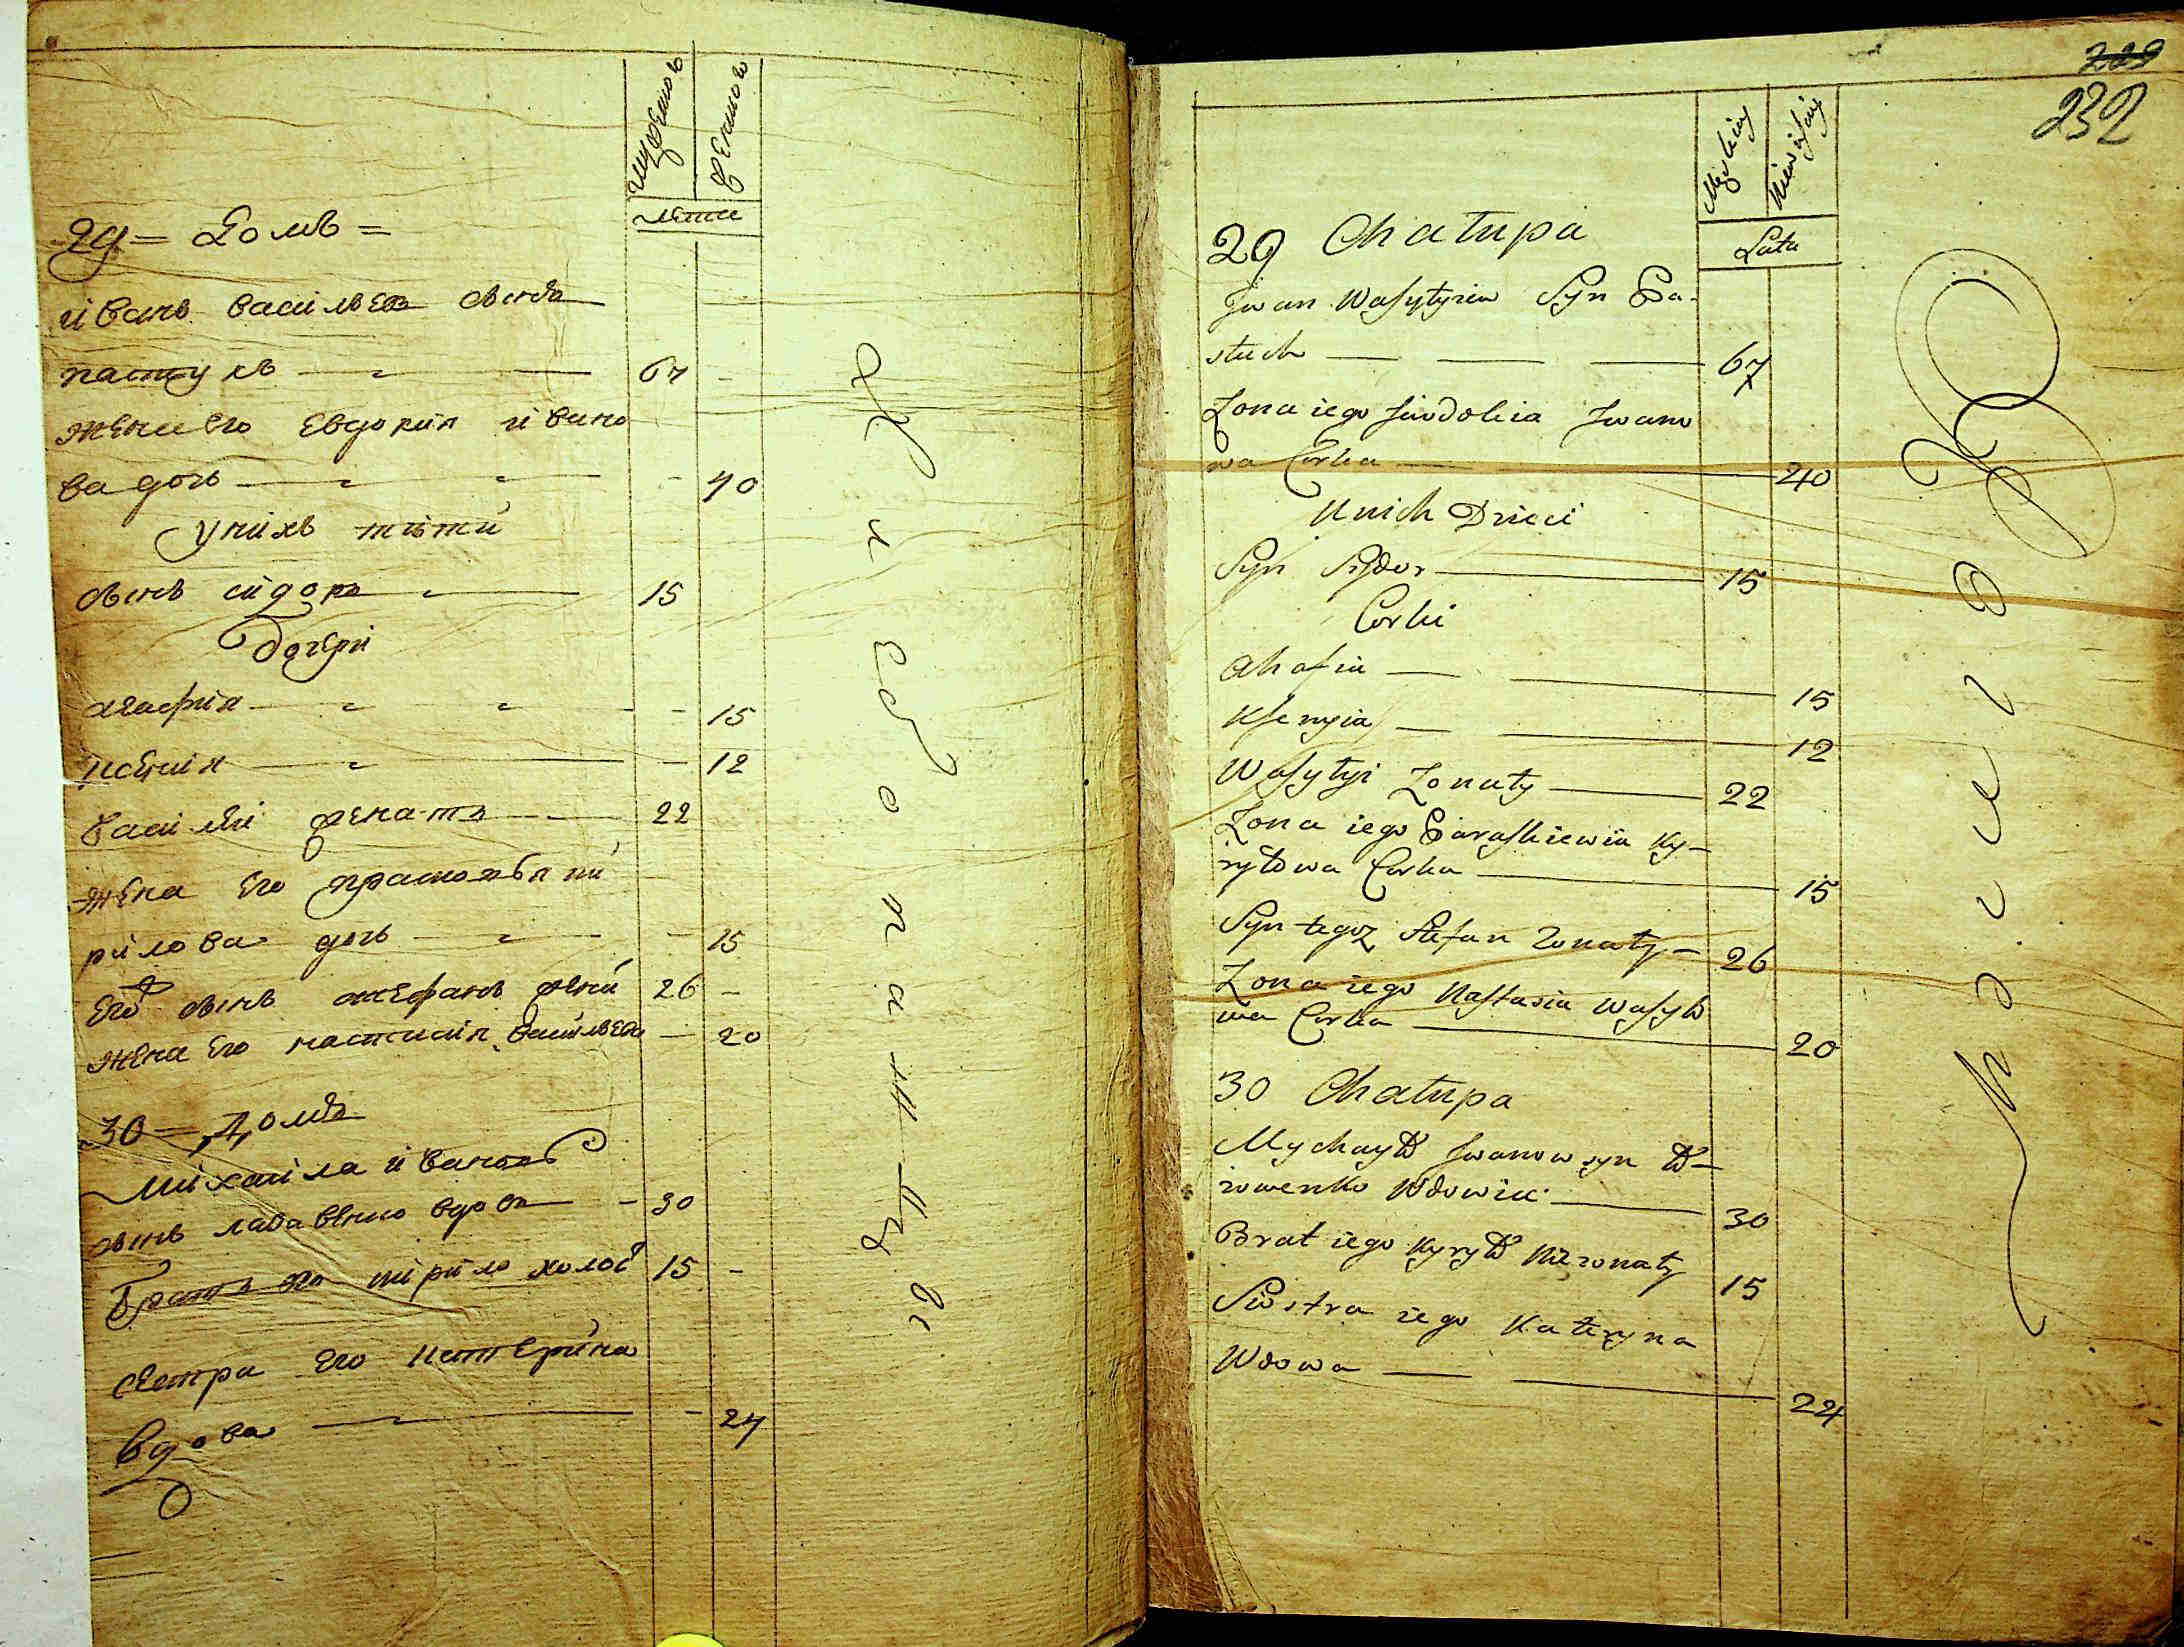 Мужеск
Женско
лета
29 = Домъ =
иванъ васильев сынъ
пастухъ — 67 -
жена его евдокия ивано
ва дочь — - 40
у нихъ дети
сынъ сидоръ — 15
дочери
агафия — - 15
ксения — - 12
василей женатъ — 22
жена его прасковья ки
рилова дочь — - 15
его сынъ стефанъ жена 26 -
жена его настасия васильева — 20
30 = Домъ
михаила иванов
сынъ вдовъ - 30
братъ его кирило холос 15 -
сестра его катерина
вдова — - 24
229
232
Męskiey
Niewiesciey
Lata
29 Chałupa
Jwan Wasylyiew Syn Pa-
stuch — — — 67
Zona iego Jiwdokia Jwano
wa Corka — 40
U nich Dzieci
Syn Sydor — 15
Corki
Ahafia — — 15
Ksenyia — — 12
Wasylyi Zonaty — 22
Zona iego Paraskiewia Ky-
ryłowa Corka — 15
Syn tegoz Stefan Zonaty — 26
Zona iego Nastasia Wasylo
wa Corka — 20
30 Chałupa
Mychayło Jwanow syn
Wdowiec — 30
Brat iego Kyryło Niezonaty
15
Siostra iego Kateryna
Wdowa — — 24